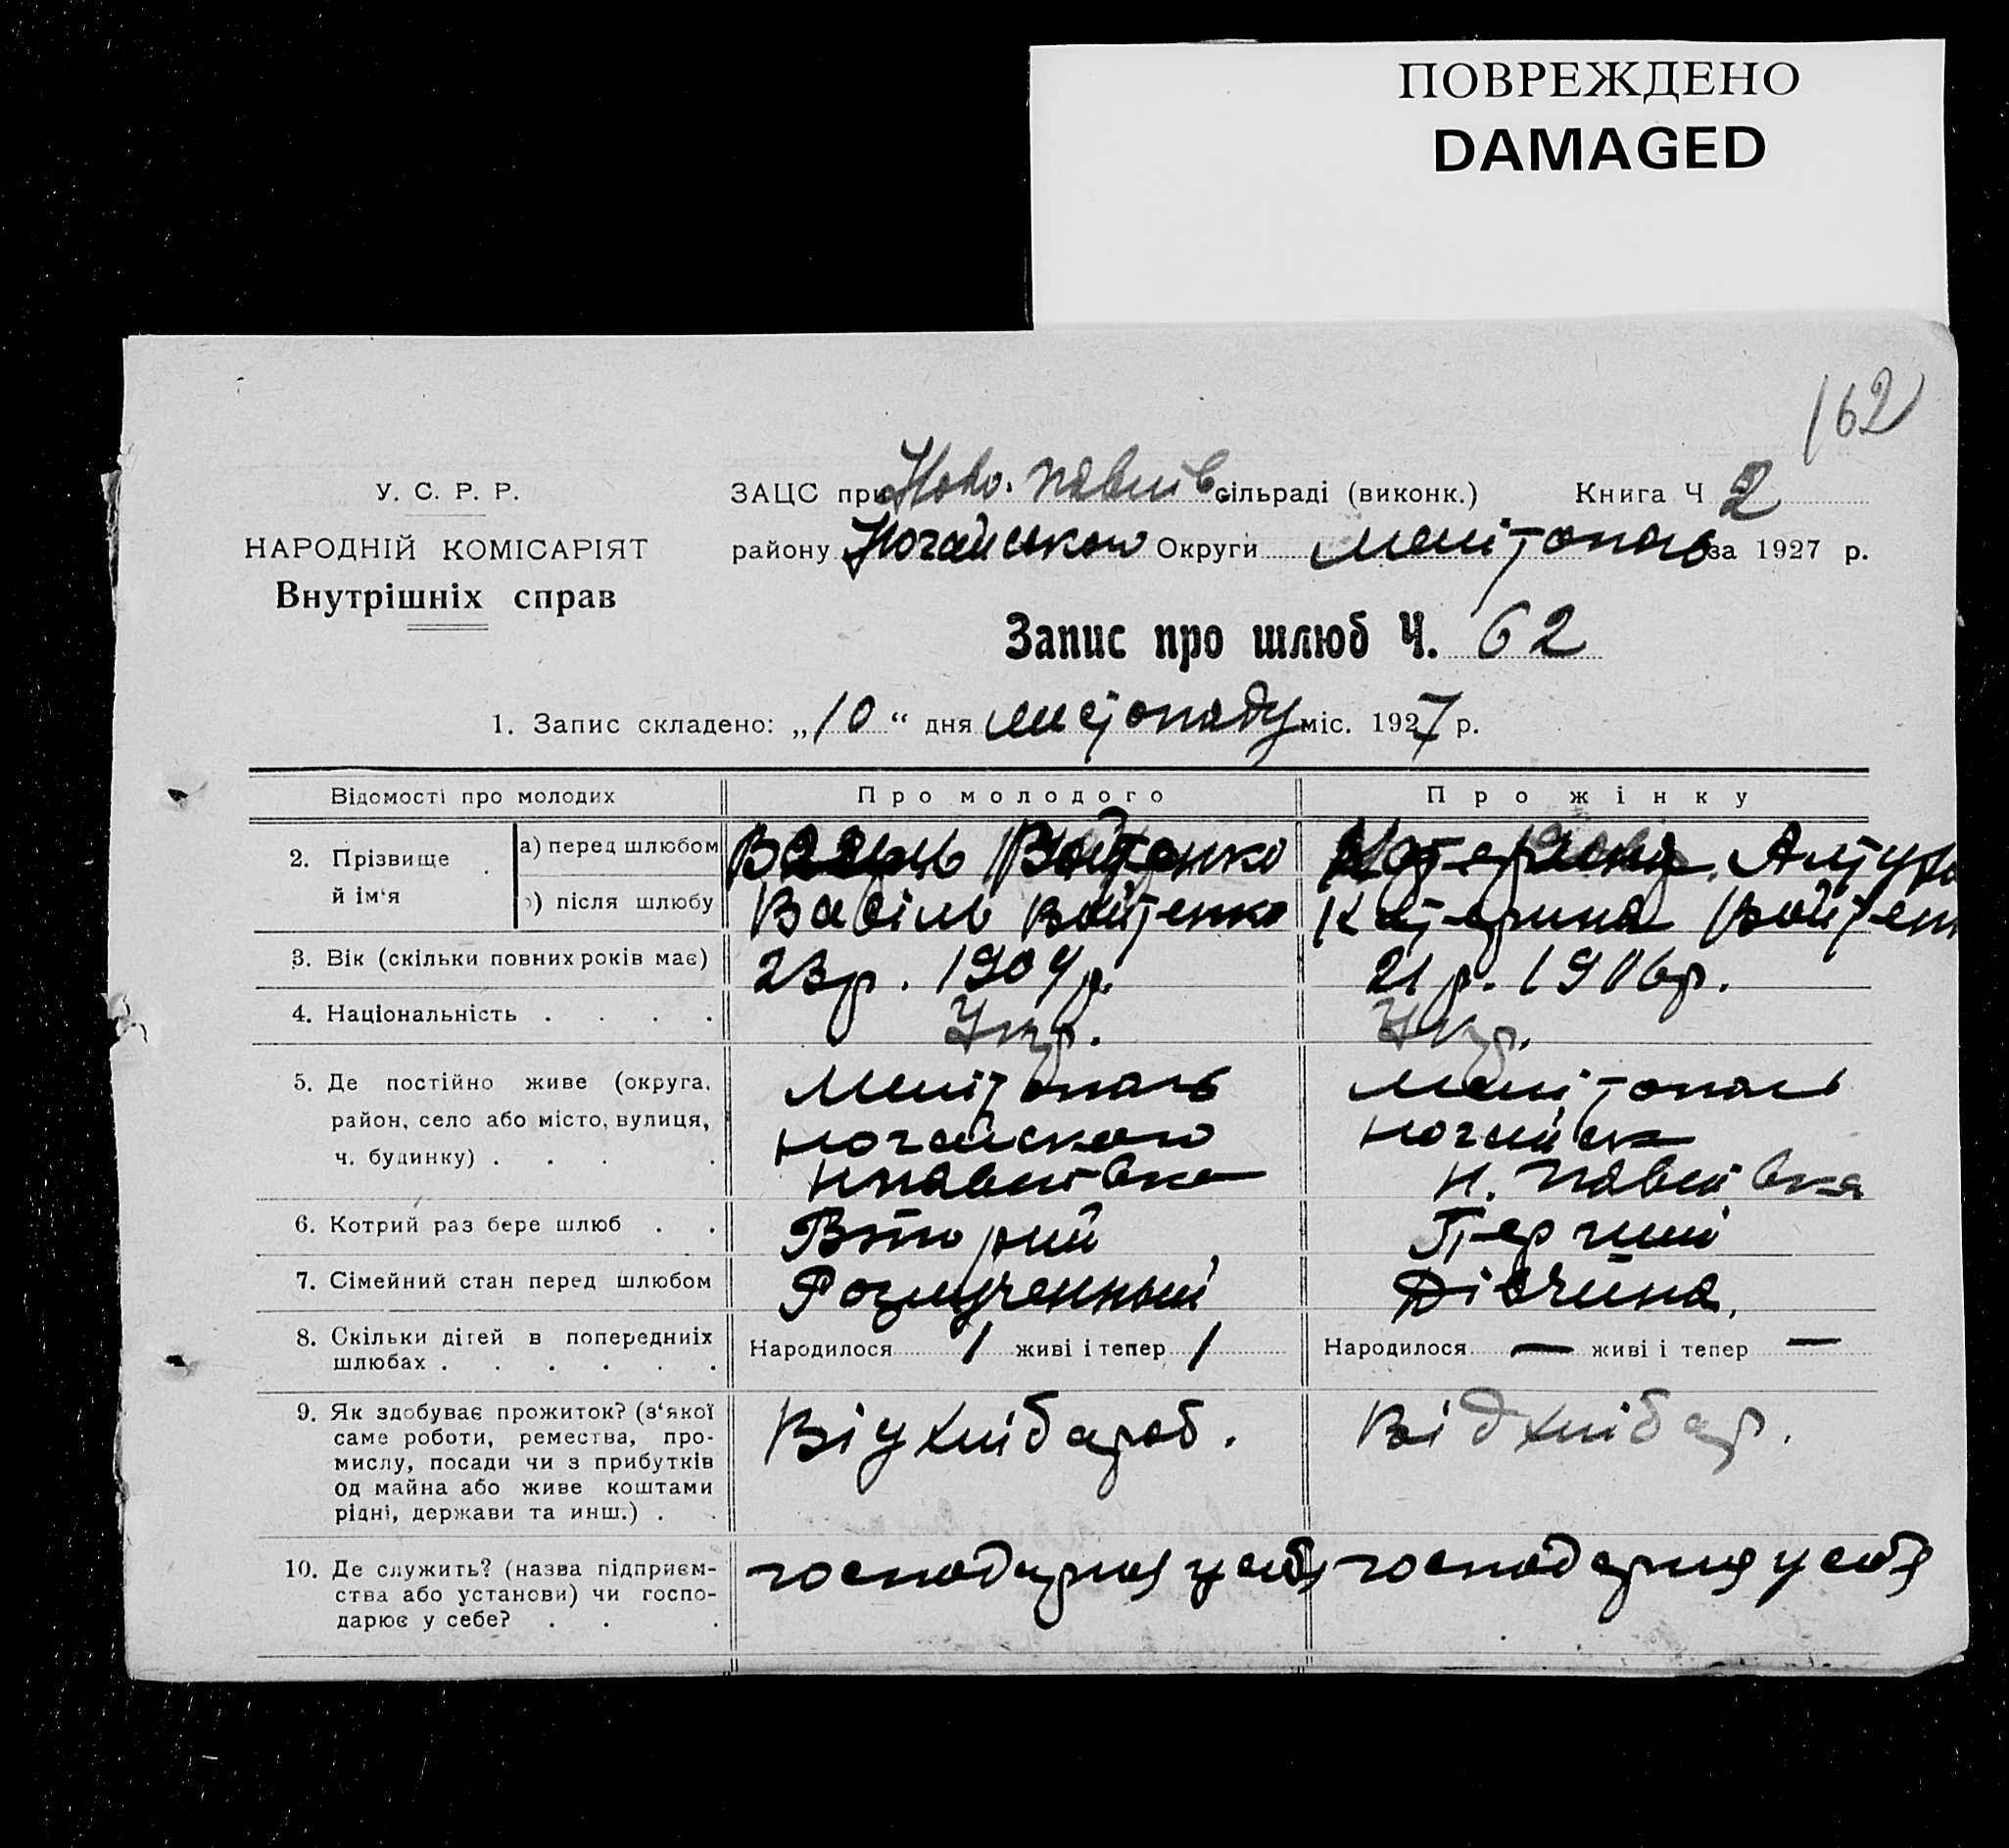 ПОВРЕЖДЕНО
DAMAGED
162
У. С. Р. Р.
НАРОДНІЙ КОМІСАРІЯТ
Внутрішніх справ
ЗАЦС при Ново. Павлів сільраді (виконк.) Книга Ч 2
району Ногайського Округи Мелітополь за 1927 р.
Запис про шлюб Ч. 62
1. Запис складено: „10“ дня листопаду міс. 1927 р.
Відомості про молодих
Про молодого
Про жінку
2. Прізвище й ім‘я
а) перед шлюбом
Василь Войтенко
Катерина
в) після шлюбу
Василь Войтенко
Катерина Войтен
3. Вік (скільки повних років має)
23 р. 1904 р.
21 р. 1906 р.
4. Національність . . . .
Укр.
Укр.
5. Де постійно живе (округа,
район, село або місто, вулиця,
ч. будинку) . . . .
Мелітополь
Ногайского
Н павлівка
Мелітополь
Ногайск
Н. Павлівка
6. Котрий раз бере шлюб . .
Вторий
Перший
7. Сімейний стан перед шлюбом
Розлученный
Дівчина.
8. Скільки дітей в попередниіх
шлюбах . . . . . .
Народилося 1 живі і тепер 1
Народилося — живі і тепер —
9. Як здобуває прожиток? (з‘якої
саме роботи, ремества, про-
мислу, посади чи з прибутків
од майна або живе коштами
рідні, держави та инш.) . .
Від хлібароб.
Від хлібар.
10. Де служить? (назва підприєм-
ства або установи) чи госпо-
дарює у себе? . . .
господарює у себя
господарює у себя